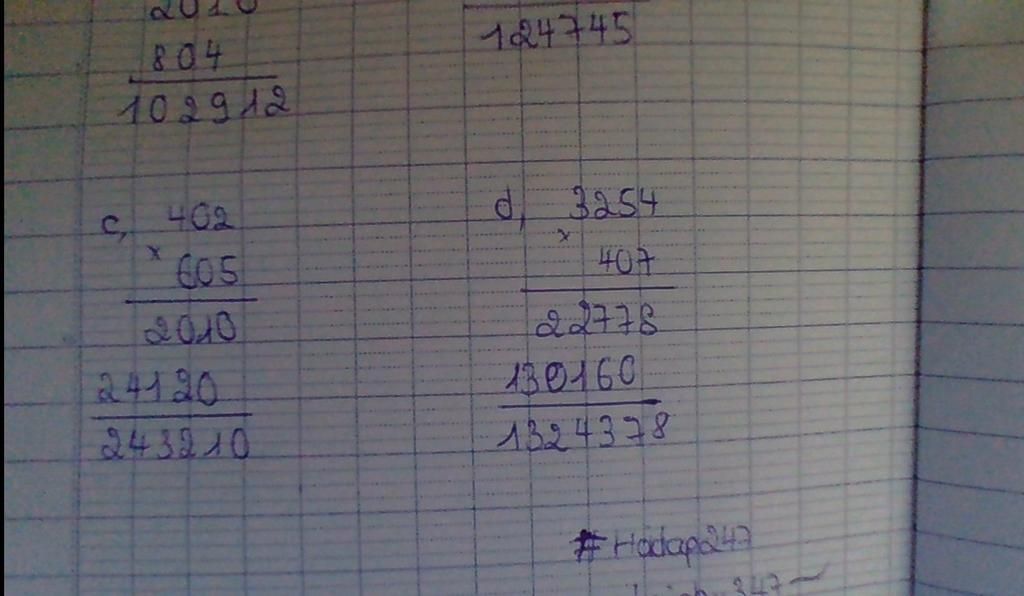 2010
804
102912
124745
c, 402
×
605
2010
24120
243210
d, 3254
×
407
22778
130160
1324378
# Hodap247